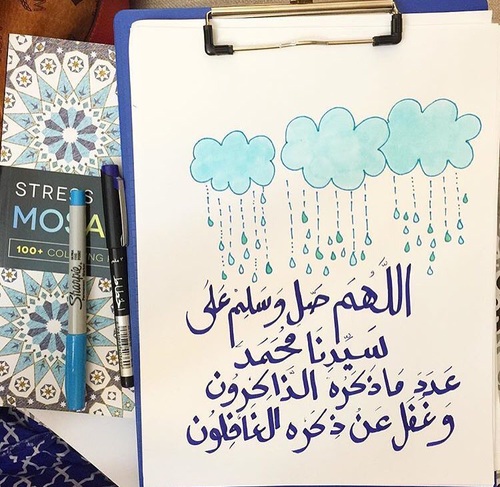 STRESS
MOSA
100+ COLORING
Sharpie
خطاط
اللَّهُمَّ صَل وَسَلِم عَلى
سَيِّدِنا مُحَمَد
عَدَدِ مَا ذَكَرَه الذَّاكِرُون
وَغَفَل عَنْ ذِكَرِه الغَافِلُون